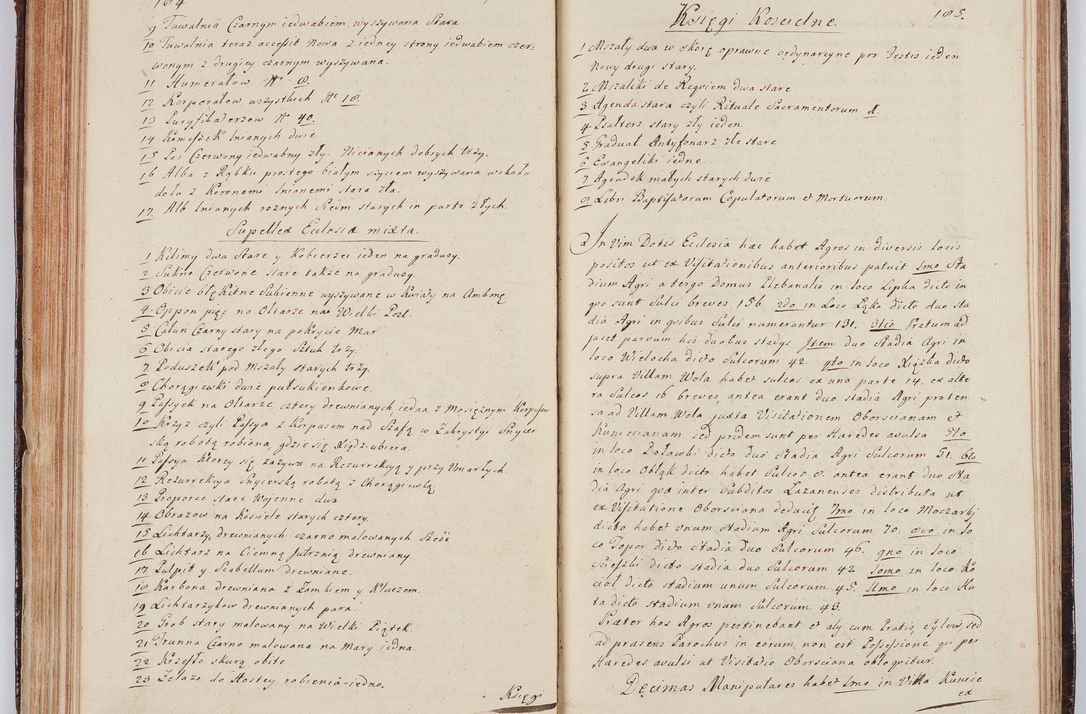 184
9 Tuwalnia Czarnym iedwabiem wyszywana Stara
10 Tuwalnia teraz accessit Nowa z iedney strony iedwabiem czer-
wonym z drugiey czarnym wyszywana.
11 Humerałow No 8.
12 Korporałow wszystkich No 18.
13 Puryfikaterzow No 40.
14 Komeszek lnianych dwie
15 Pas Czerwony iedwabny zły. Nicianych dobrych trzy.
16 Alba z Rąbku prostego białym szyciem wyszywana wokoło
dołu z Koronami lnianemi stara zła.
17. Alb lnianych roznych Siedm starych in parte złych.
Supellex Ecclesiæ mixta.
1 Kilimy dwa Stare y Kobierzec ieden na gradusy.
2 Sukno Czerwone stare także na gradusy.
3 Obicie błękitne Sukienne wyszywane w kwiaty na Ambonę
4. Oppon pięc na Ołtarze na Wielki Post.
5 Całun Czarny stary na pokrycie Mar
6 Obicia starego złego Sztuk trzy.
7 Poduszek pod Mszały starych trzy.
8 Chorągiewki dwie pułsukienkowe.
9 Passyek na Ołtarze cztery drewnianych iedna z Mosiężnym Korpusem
10 Krzyż czyli Passya z Korpusem nad Szafą w Zakrystyi Snycer
ską robotą robiona gdzie się Xiądz ubiera.
11 Passya ktorey się zażywa na Rezurrekcyą y przy Umarłych.
12 Rezurrekcya Snycerską robotą z Chorągiewką
13 Proporce stare Wojenne dwa
14 Obrazow na Kosciele starych cztery.
15 Lichtarzy drewnianych czarno malowanych Sześć
16 Lichtarz na Ciemną Jutrznią drewniany.
17 Pulpit y Scabellum drewniane.
18 Karbona drewniana z Zamkiem y Kluczem.
19 Lichtarzykow drewnianych para
20 Grob stary malowany na Wielki Piątek
21 Trunna Czarno malowana na Mary iedna.
22 Krzesło skurą obite
23 Żelazo do Hostey robienia iedno.
Księgi
185.
Księgi Koscielne.
1 Mszały dwa w Skorę oprawne ordynaryjne pro Festis ieden
Nowy drugi stary.
2 Mszaliki de Requiem dwa stare
3 Agenda stara czyli Rituale Sacramentorum 1
4 Psałterz stary zły ieden
5 Graduał Antyfonarz złe stare
6 Ewangeliki iedne.
7 Agendek małych starych dwie
8 Libri Baptisatorum Copulatorum et Mortuorum.
In Vim Dotis Ecclesia hæc habet Agros in diversis locis
positos ut ex Visitationibus anterioribus patuit 1mo Sta
dium Agri a tergo Domus Plebanalis in loco Lipka dicto in
quo sunt Sulci breves 156. 2do in Loco Łąko dicto duo sta
dia Agri in quibus Sulci numerantur 131. 3tio Pratum ad
jacet parvum his duobus stadys Item duo Stadia Agri in
loco Wielocha dicto Sulcorum 42 4to in loco Xiązka dicto
supra Villam Wola habet sulcos ex una parte 14. ex alte
ra Sulcos 16 breves, antea erant duo stadia Agri proten
sa ad Villam Wola juxta Visitationem Oborscianam et
Kuniecianam sed pridem sunt per Hæredes avulsa 5to
in loco Dosawki dicto duo Stadia Agri Sulcorum 51. 6to
in loco Obłąk dicto habet Sulcos 8. antea erant duo Sta
dia Agri quæ inter Subditos Lazanenses distributa ut
ex Visitatione Oborsciana deducit 7mo in loco Moczarki
dicto habet unum Stadium Agri Sulcorum 70. 8vo in lo
co Topor dicto Stadia duo Sulcorum 46. 9no in loco
Scieszki dicto Stadia duo Sulcorum 42 10mo in loco Ko
ciol dicto stadium unum Sulcorum 45. 11mo in loco Hu
ta dicto stadium unum Sulcorum 43.
Præter hos Agros pertinebant et aly cum Pratis, et Sylvis, sed
ad præsens Parochus in eorum non est Possessione qui per
Hæredes avulsi ut Visitatio Oborsciana obloquitur.
Decimas Manipulares habet 1mo in Villa Kunice
ex